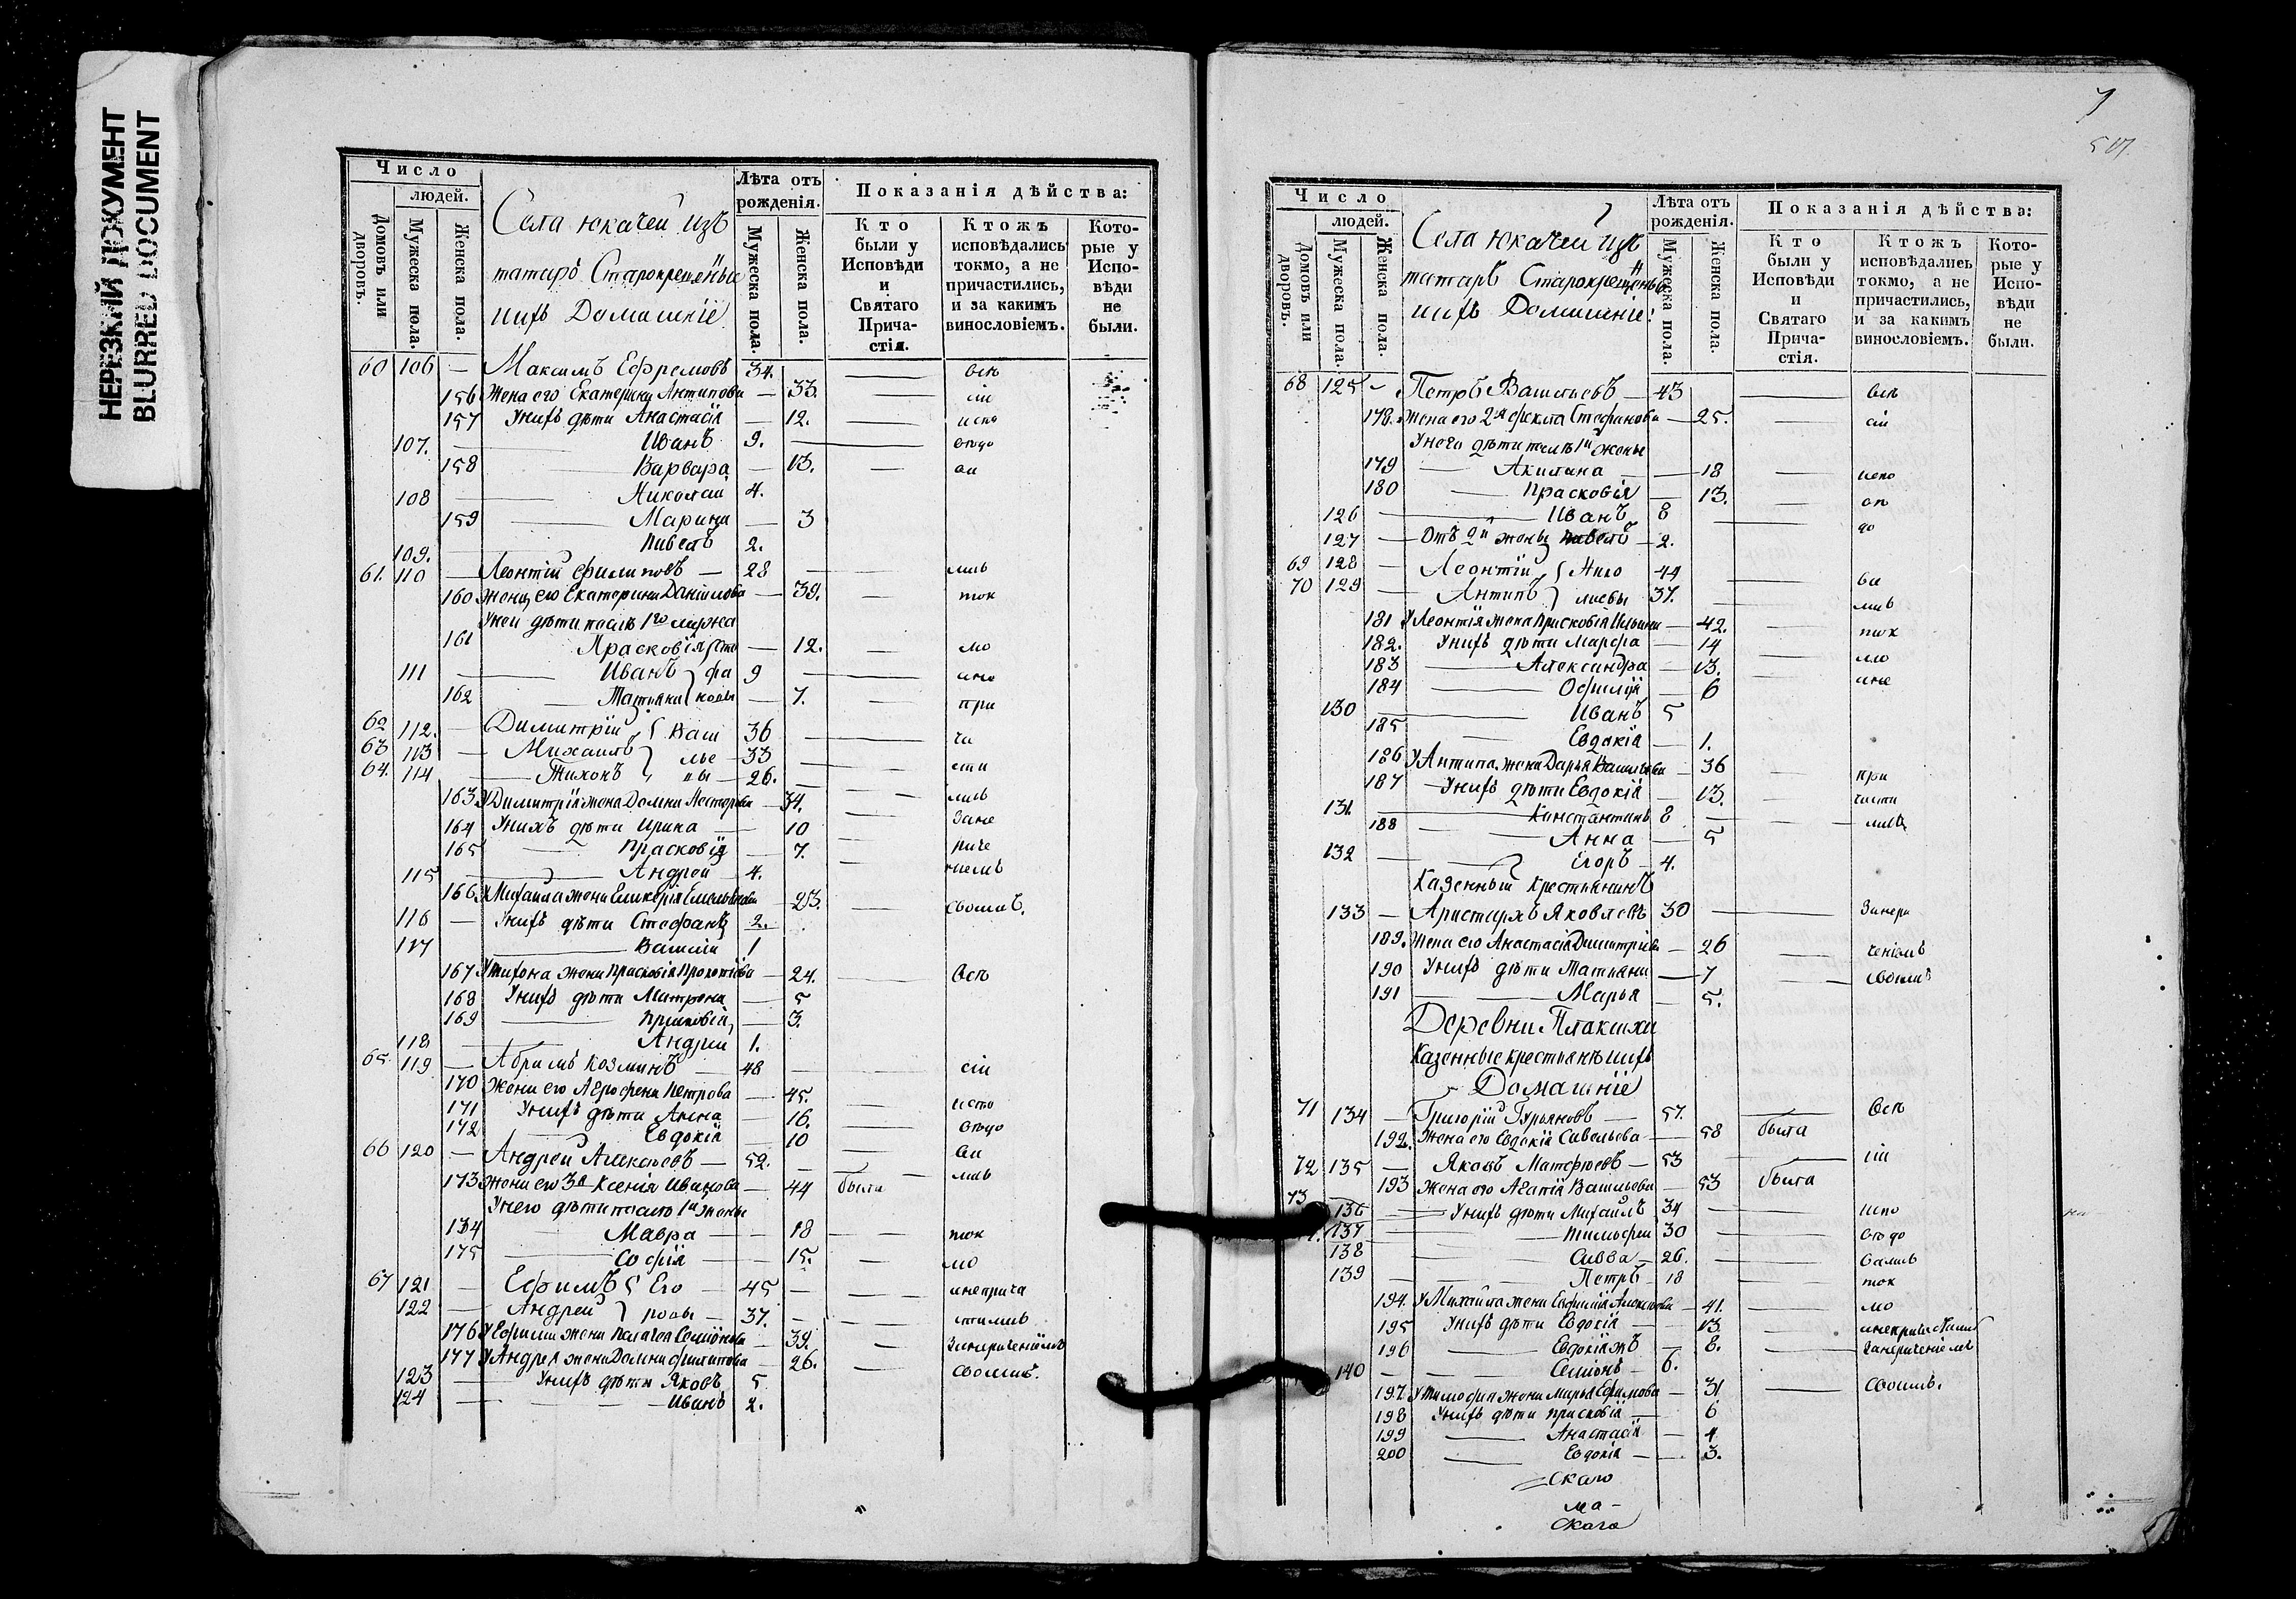 НЕРЕЗКИЙ ДОКУМЕНТ
BLURRED DOCUMENT
Число
людей.
Домовъ или дворовъ.
Мужеска пола.
Женска пола.
Села Юкачей изъ
татаръ Старокрещеные
ихъ Домашніе
Лѣта отъ рожденія.
Мужеска пола.
Женска пола.
Показанія дѣйства:
Кто были у Исповѣди и Святаго Прича-стія.
Ктожъ исповѣдались токмо, а не причастились, и за какимъ винословіемъ.
Кото-рые у Испо-вѣди не были.
60 106 — Максимъ Ефремовъ 34. — всѣ
156 Жена его Екатерина Антипова — 33. — сіи
157 У нихъ дѣти Анастасія — 12. — испо
107. — Иванъ 9. —
158 — Варвара — 13. —
108 — Николай 4.
159 — Марина — 3
109. — Павелъ 2.
61. 110 — Леонтій Филиповъ — 28 — лись
160 Жена его Екатерина Даніилова — 39. — ток
У ней дѣти послѣ 1го мужа
161 Прасковія — 12. — мо
111 — Иванъ 9 —
162 — Татьяна — 7. — при
62 112. — Димитрій Васи 36 — ча
63 113 — Михаилъ лье 33 — сти
64. 114 — Тихонъ вы 26. — лись
163 У Димитрія жена Домна Нестерова — 34. —
164 У нихъ дѣти Ирина — 10 —
165 — Прасковія — 7. —
115 — Андрей 4.
166 У Михаила жена Гликерія Емельянова — 23. — своимъ.
116 — У нихъ дѣти Стефанъ 2.
117 — Василій 1
167 У Тихона жена Прасковія Прокопіева — 24. — Всѣ
168 У нихъ дѣти Матрона — 5
169 — Прасковія — 3.
118 — Андрей 1.
65 119 — Абрамъ Козминъ — 48 — сіи
170 Жена его Агрофена Петрова — 45. — испо
171 У нихъ дѣти Анна — 16. —
172 — Евдокія — 10 —
66 120 — Андрей Алексѣевъ — 52. —
173 Жена его 3я Ксенія Иванова — 44 была лись
У него дѣти послѣ 1й жены
134 Мавра — 18 — ток
175 Софія — 15. — мо
67 121 — Ефимъ Его 45 — инеприча
122 — Андрей ровы 37. — стились
176 У Ефима жена Пелагея Семіонова — 39. — Занеречениемъ
177 У Андрея жена Домна Филипова — 26. — своимъ.
123 — У нихъ дѣти Яковъ 5
124 — Иванъ 2.
7
Число
людей.
Домовъ или дворовъ.
Мужеска пола.
Женска пола.
Села Юкачей изъ
татаръ Старокрещеныхъ
ихъ Домашніе:
Лѣта отъ рожденія.
Мужеска пола.
Женска пола.
Показанія дѣйства:
Кто были у Исповѣди и Святаго Прича-стія.
Ктожъ исповѣдались токмо, а не причастились, и за какимъ винословіемъ.
Кото-рые у Испо-вѣди не были.
68 125 — Петръ Васильевъ — 43 — Всѣ
178. Жена его 2я Фекла Стефанова — 25. — сіи
У него дѣти отъ 1й жены
179 — Акилина — 18 — испо
180 — Прасковія — 13. —
126 — Иванъ 8 —
127 — Отъ 2й жены Павелъ — 2.
69 128 — Леонтій Нико 44 —
70 129 — Антипъ лаевы 37. — лись
181 У Леонтія жена Прасковія Ильина — 42. — ток
182. У нихъ дѣти Марфа — 14 — мо
183 — Александра — 13. — ине
184 — Офимія — 6
130 — Иванъ 5
185 — Евдокія — 1.
186 У Антипа жена Дарья Васильева — 36 — при
187 — У нихъ дѣти Евдокія — 13. — части
131. — Констаптинъ 8 — лись
188 — Анна — 5
132 — Егоръ — 4.
Казенный крестьянинъ
133 — Аристархъ Яковлевъ 30 — Занере
189. Жена его Анастасія Димитріева — 26 — ченіемъ
190 У нихъ дѣти Татьяна — 7 — своимъ
191 — Марья — 5.
Деревни Плакихи
Казенные крестьянъ ихъ
Домашніе
71 134 — Григорій Гурьяновъ — 57. — Всѣ
192. Жена его Евдокія Савельева — 58 была
72 135 — Яковъ Матфеевъ — 53 —
193 Жена его Агапія Васильева — 53 была
73 136 — У нихъ дѣти Михаилъ 34 — испо
137 — Тимофей 30 —
138 — Савва — 26. —
139 — Петръ — 18 — ток
194. У Михаила жена Евфимія Алексѣева — 41. — мо
195 У нихъ дѣти Евдокія — 13. — инепричастились
196 — Евдокія жъ — 8. — Занереченіемъ
140 — Семіонъ — 6.
197 У Тимофея жена Марья Ефимова — 31 — своимъ.
198 У нихъ дѣти Прасковія — 6
199 — Анастасія — 4
200 — Евдокія — 3.
скаго
ма-
скаго